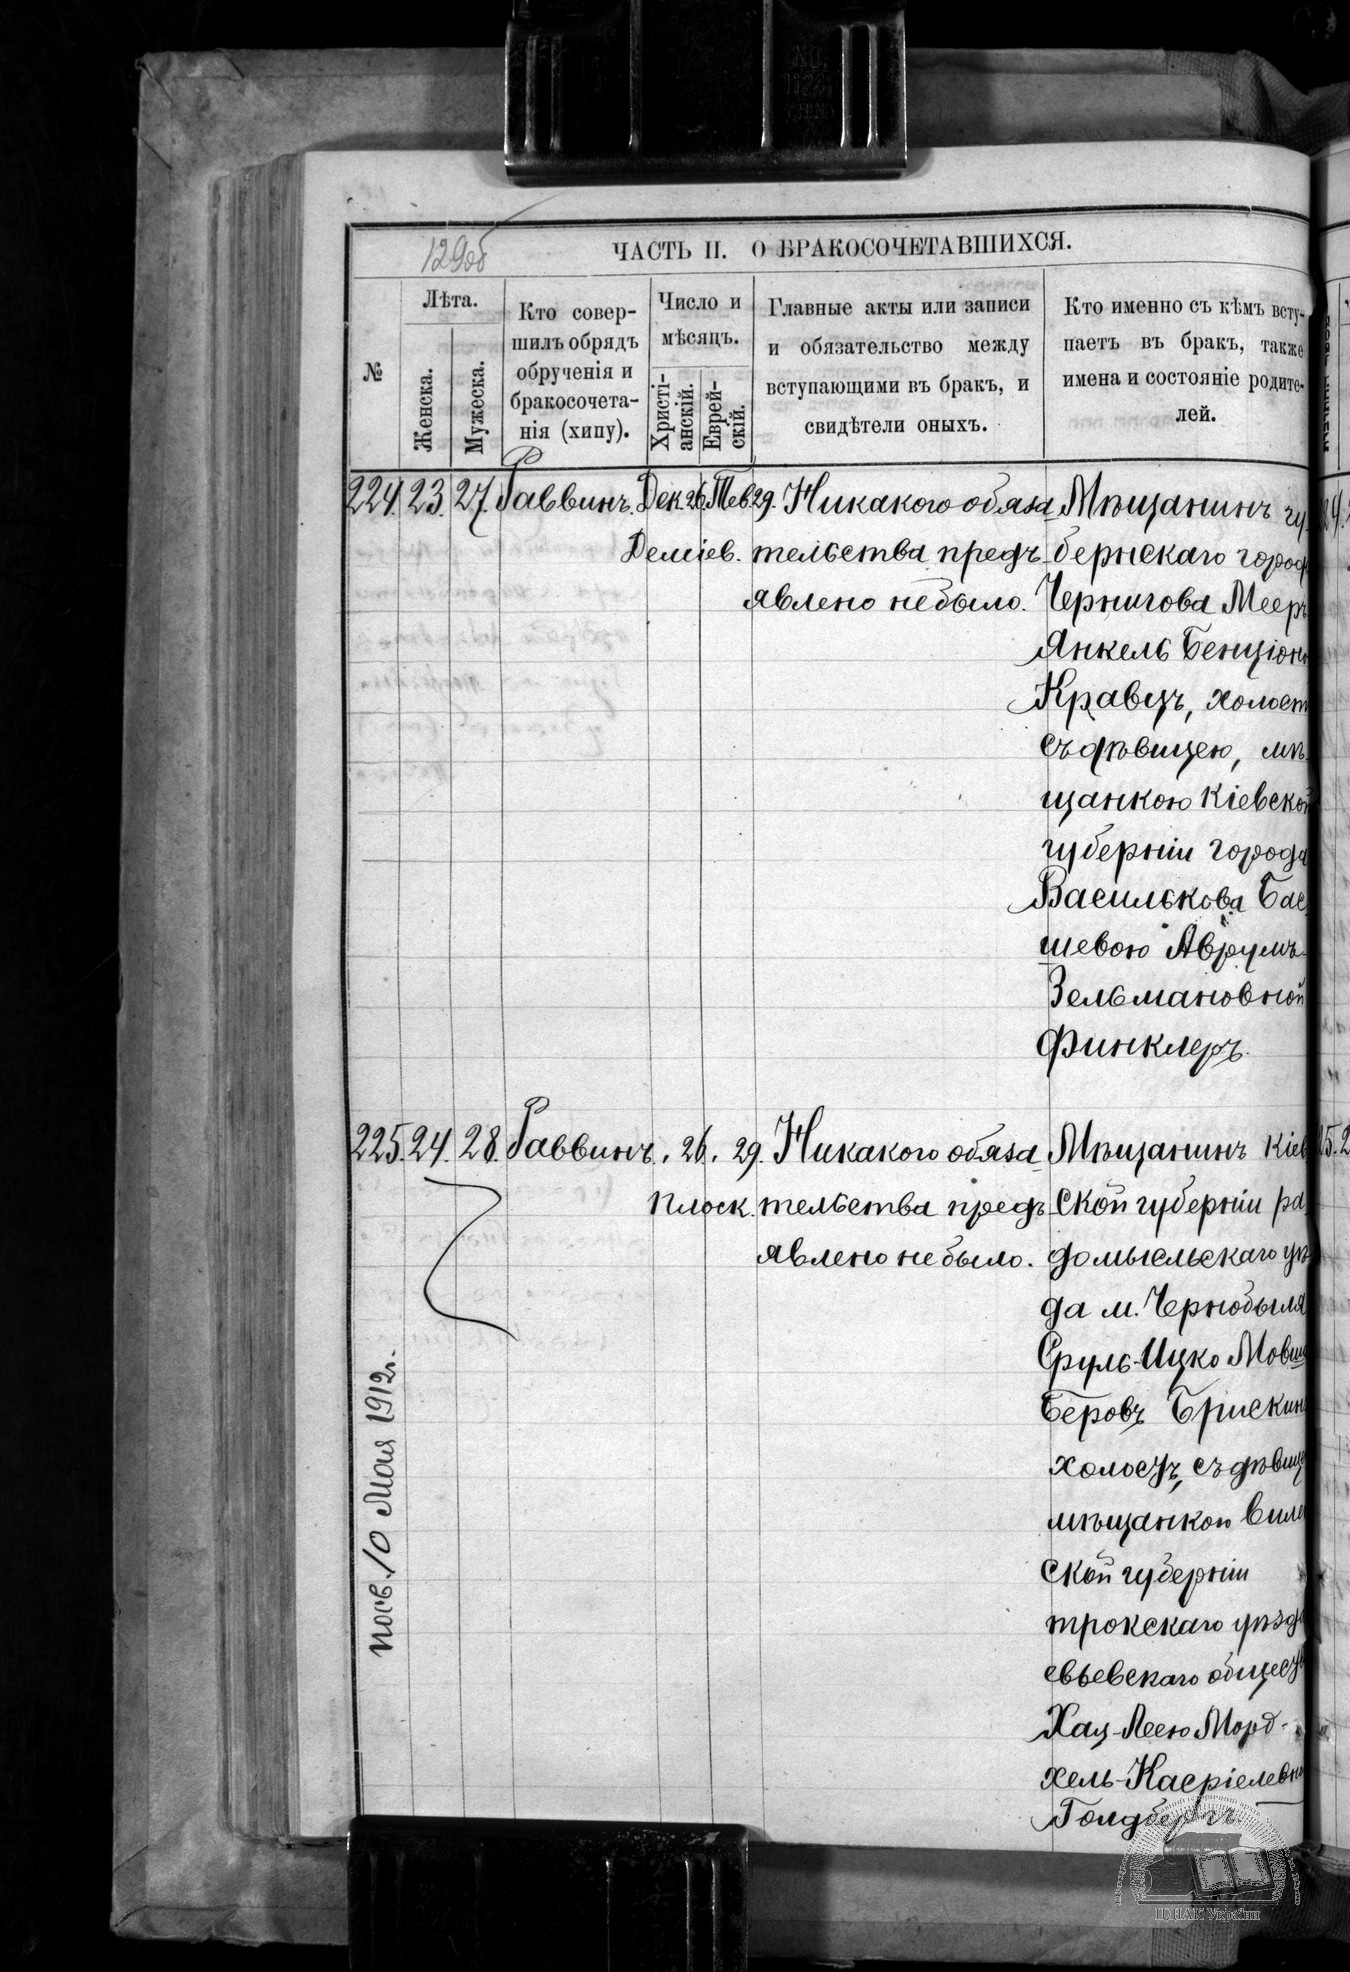 129об
ЧАСТЬ II. О БРАКОСОЧЕТАВШИХСЯ.
№
Лѣта.
Женска.
Мужеска.
Кто совер-
шилъ обрядъ
обрученія и
бракосочета-
нія (хипу).
Число и
мѣсяцъ.
Христі-
анскій.
Еврей-
скій.
Главные акты или записи
и обязательство между
вступающими въ бракъ, и
свидѣтели оныхъ.
Кто именно съ кѣмъ всту-
паетъ въ бракъ, также
имена и состояніе родите-
лей.
224. 23. 27. Раввинъ. Дек. 26. Тев. 29. Никакого обяза- Мѣщанинъ гу-
Деміев. тельства предъ- бернскаго город
явлено небыло. Чернигова Мееръ
Янкель Бенціон
Кравецъ, холост
съ дѣвицею, мѣ-
щанкою Кіевской
губерніи города
Василькова Бас-
шевою Аврумъ-
Зельмановной
Финклеръ.
225. 24. 28. Раввинъ. 26. 29. Никакого обяза- Мѣщанинъ Кіев
Плоск. тельства предъ- ской губерніи ра-
явлено небыло. домысльскаго уѣ
да м. Чернобыля
Сруль-Ицко Мовш
Беровъ Брискин
холостъ, съ дѣвице
мѣщанкою Вилен
ской губерніи
трокскаго уѣзда
евьевскаго общест
Хаи-Леею Морд-
хель-Касріелевн
Голдбергъ.
посв. 10 Мая 1912г.
ЦДІАК України